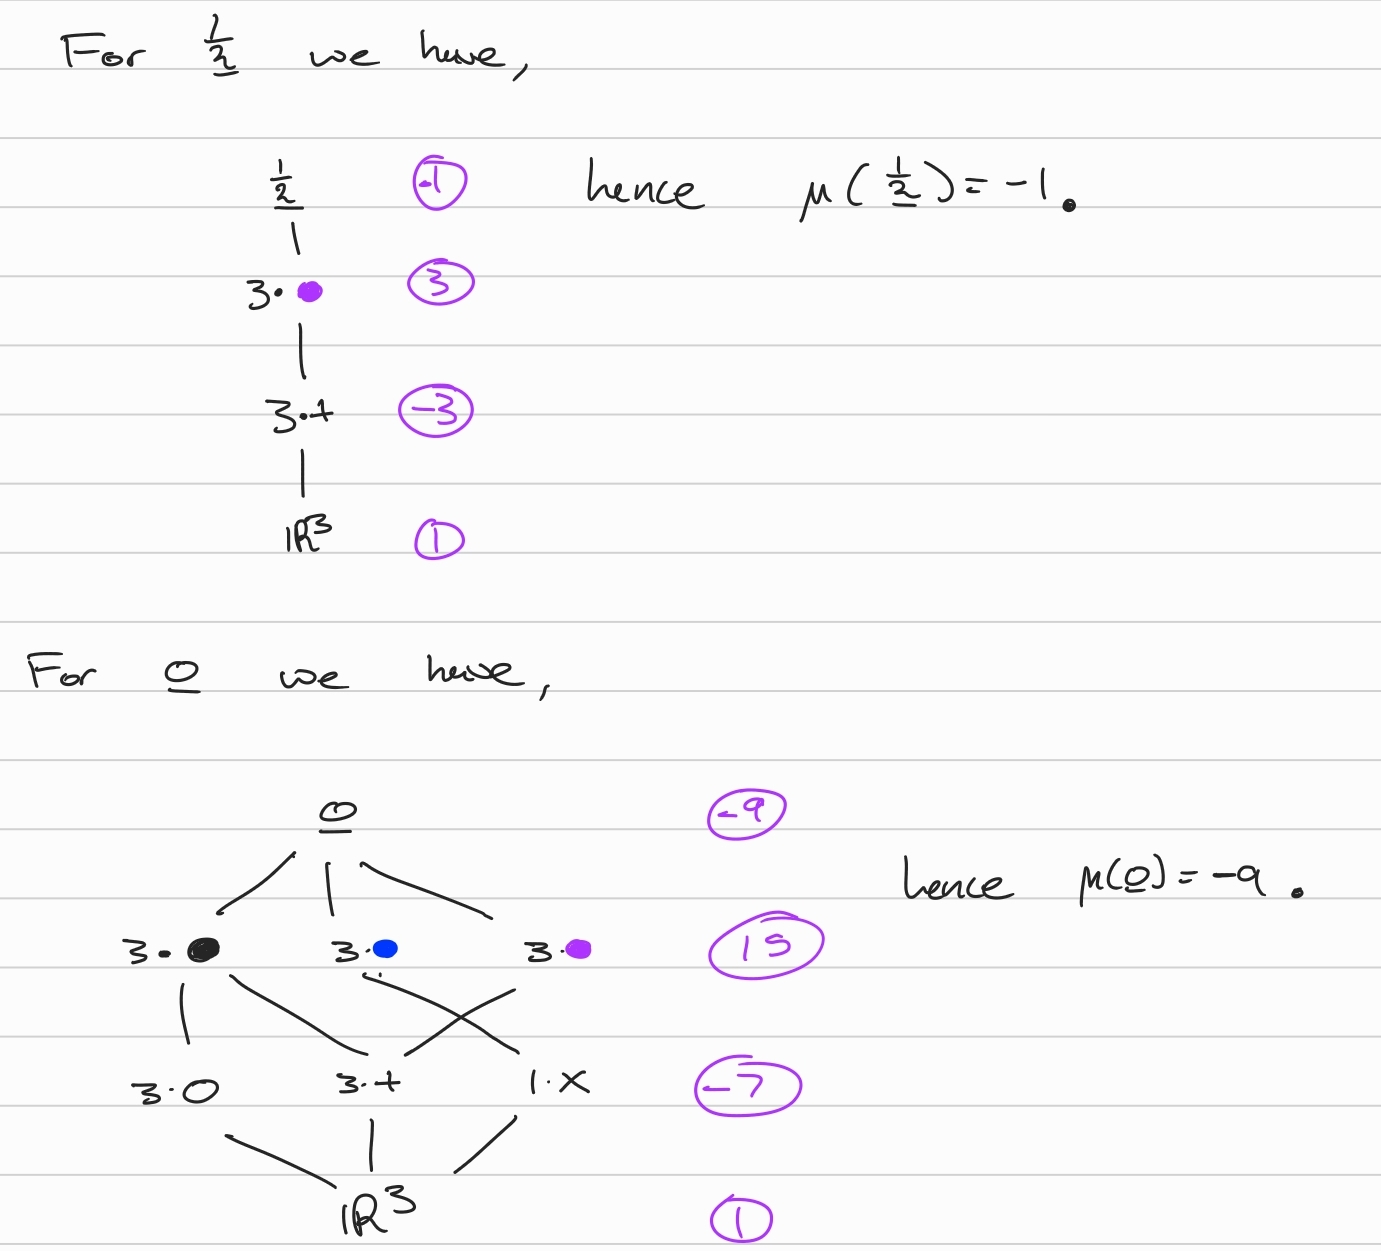 For 1/2 we have,
1/2 -1 hence μ(1/2) = -1.
3· ● 3
3·+ -3
ℝ³ 1
For 0 we have,
0 -9
hence μ(0) = -9.
3·● 3·● 3·● 15
3·O 3·+ 1·X -7
ℝ³ 1